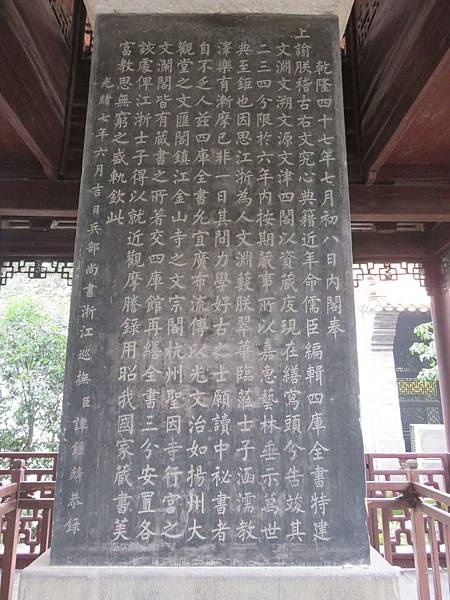 乾隆四十七年七月初八日內閣奉
上諭朕稽古右文究心典籍近年命儒臣編輯四庫全書特建
文淵文溯文源文津四閣以資藏庋現在繕寫頭分告竣其
二三四分限於六年內按期蕆事所以嘉惠藝林垂示萬世
典至鉅也因思江浙為人文淵藪朕翠華臨莅士子涵濡教
澤樂育漸摩已非一日其間力學好古之士願讀中祕書者
自不乏人茲四庫全書允宜廣布流傳以光文治如揚州大
觀堂之文匯閣鎮江金山寺之文宗閣杭州聖因寺行宮之
文瀾閣皆有藏書之所著交四庫館再繕全書三分安置各
該處俾江浙士子得以就近觀摩謄錄用昭我國家藏書美
富教思無窮之盛軌欽此
光緒七年六月吉日兵部尚書浙江巡撫臣譚鍾麟恭錄